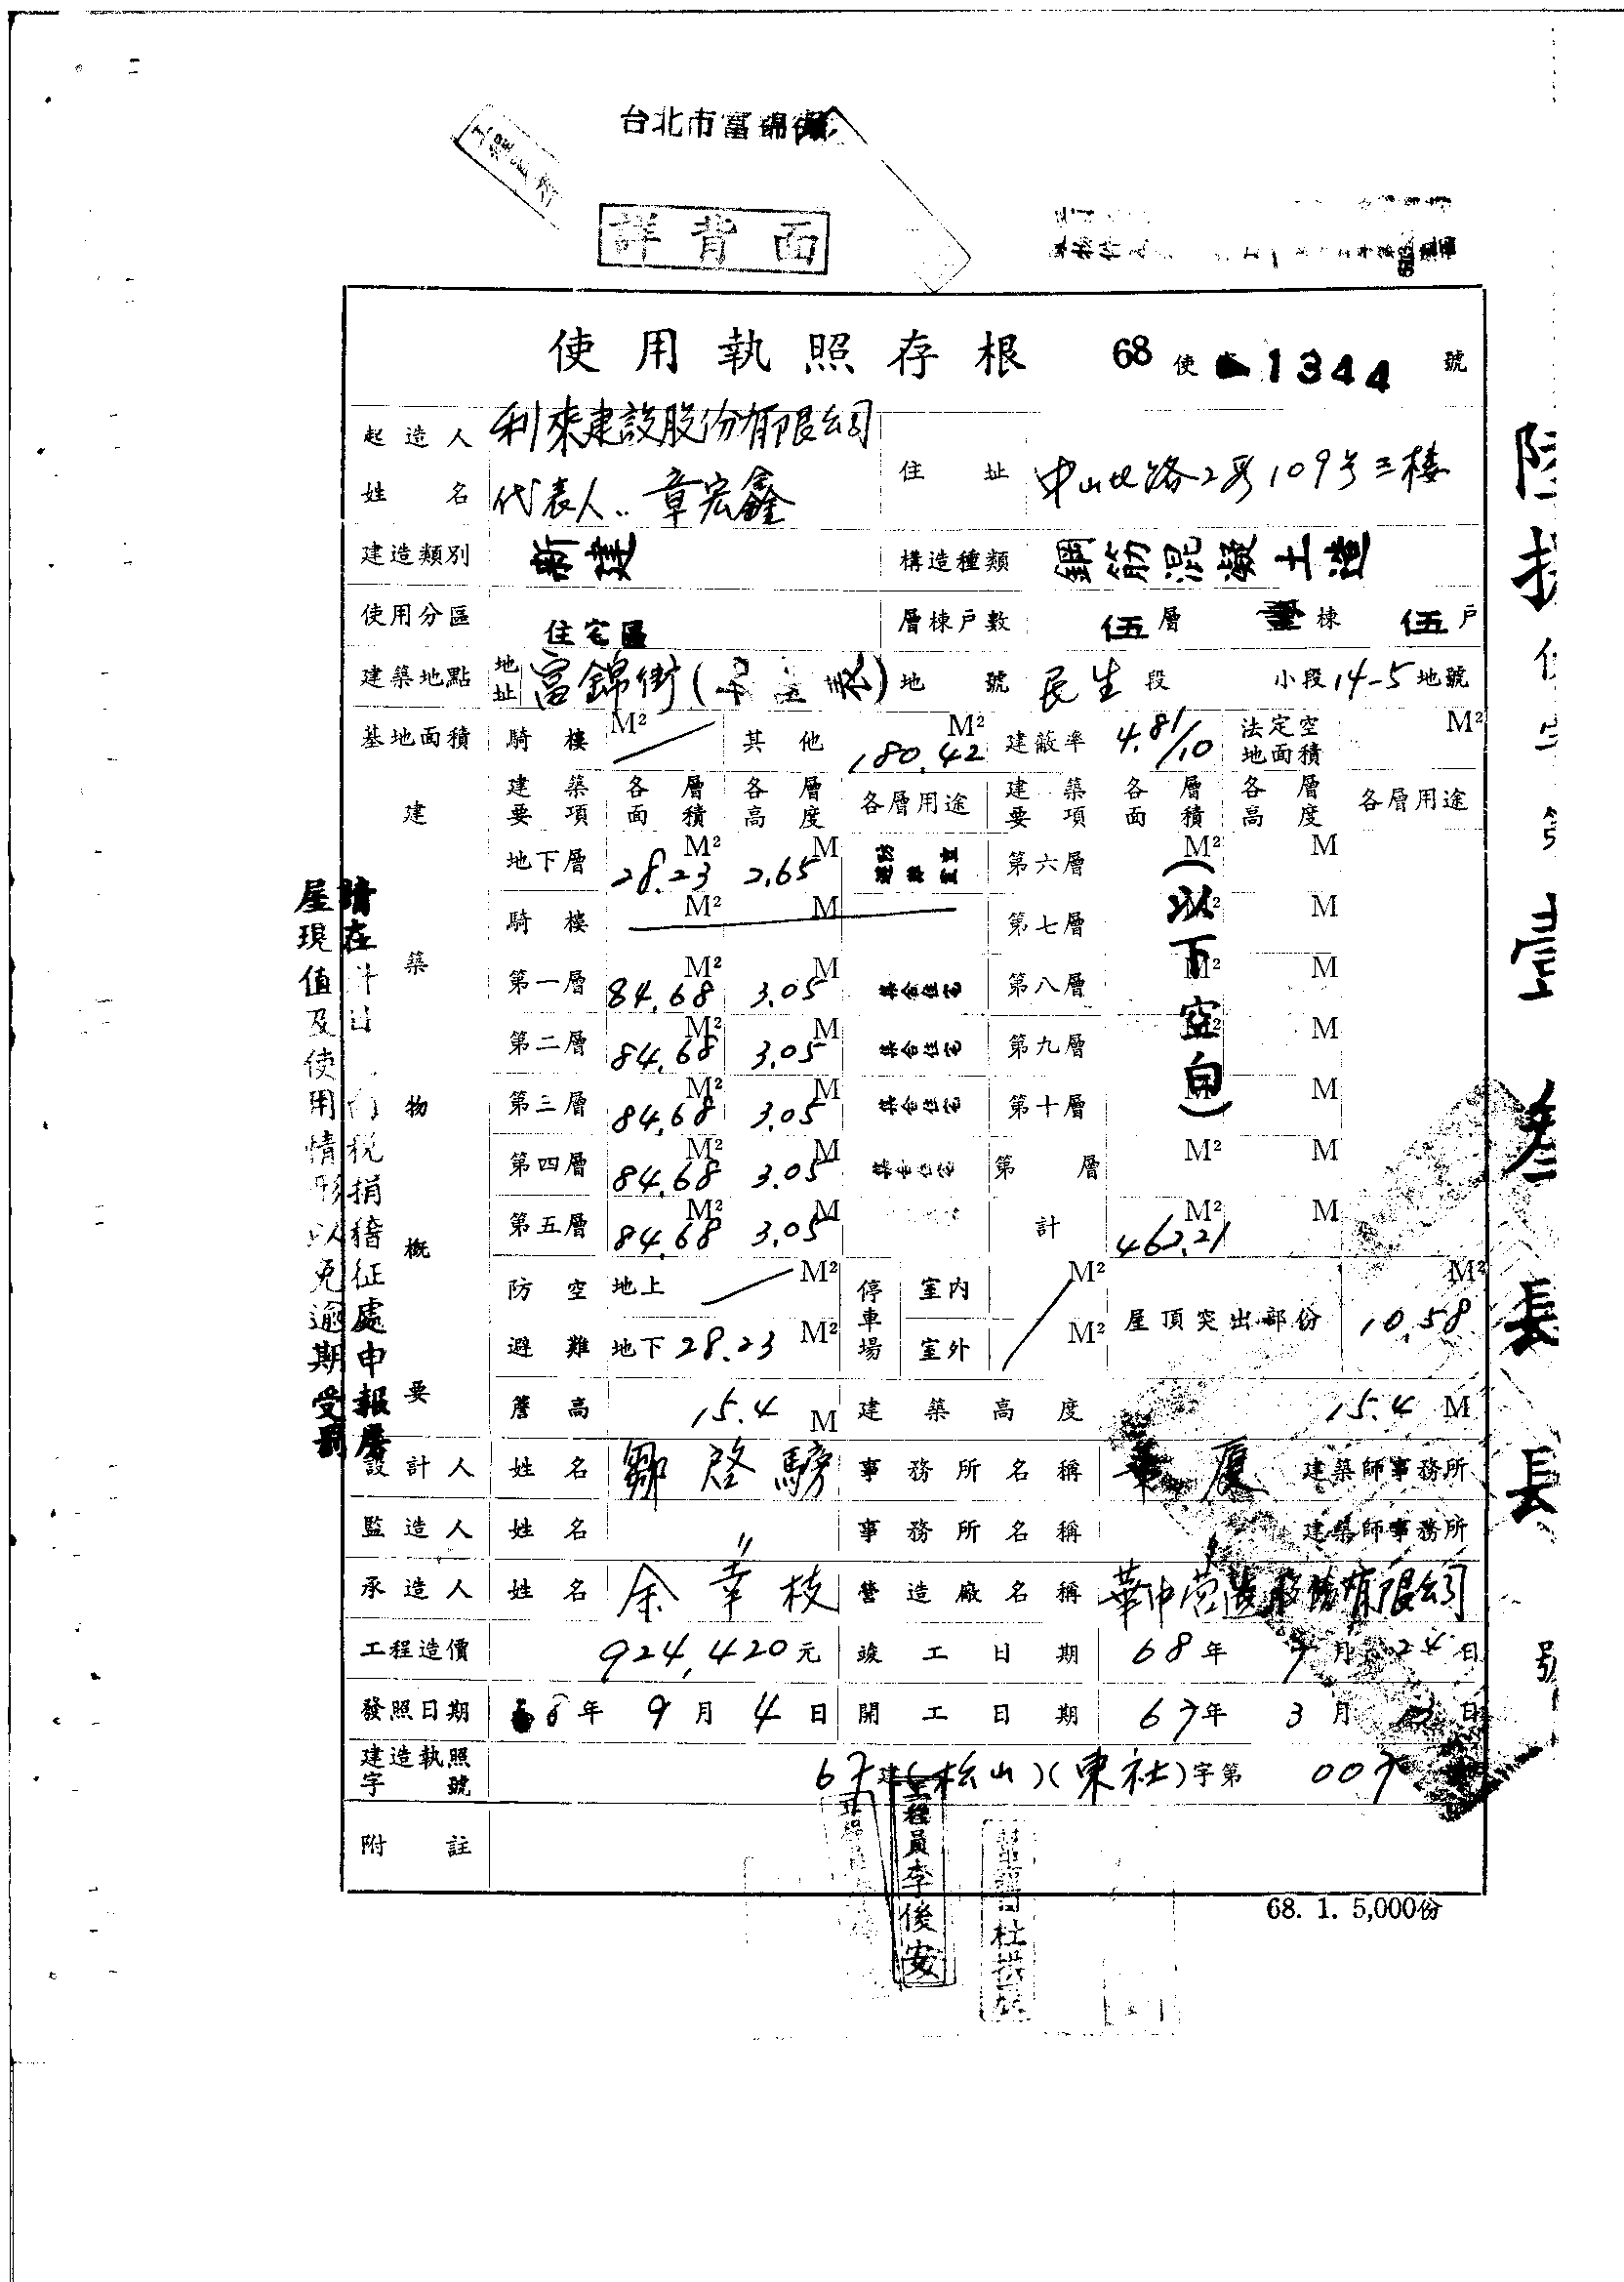 台北市富錦街
詳背面
使用執照存根 68 使 1344 號
起造人姓名 利來建設股份有限公司
代表人：章宏鑫
住址 中山北路2段109号三樓
建造類別 新建 構造種類 鋼筋混凝土造
使用分區 住宅區 層棟戶數 伍層 壹棟 伍戶
建築地點 地址 富錦街( ) 地號 民生段 小段14-5地號
基地面積 騎樓 M² 其他 180.42 M² 建蔽率 4.81/10 法定空地面積 M²
建築物概要
建築要項 各層面積 各層高度 各層用途 建築要項 各層面積 各層高度 各層用途
地下層 28.23 M² 2.65 M 第六層 M² M
騎樓 M² M 第七層 M² M
第一層 84.68 M² 3.05 M 集合住宅 第八層 M² M
第二層 84.68 M² 3.05 M 集合住宅 第九層 M² M
第三層 84.68 M² 3.05 M 集合住宅 第十層 M² M
第四層 84.68 M² 3.05 M 集合住宅 第 層 M² M
第五層 84.68 M² 3.05 M 計 M² M
(以下空白)
防空避難 地上 M² 停車場 室內 M² 屋頂突出部份 10.58 M²
地下 28.23 M² 室外 M²
簷高 15.4 M 建築高度 15.4 M
設計人 姓名 鄒啓 事務所名稱 華廈 建築師事務所
監造人 姓名 〃 事務所名稱 〃 建築師事務所
承造人 姓名 余幸枝 營造廠名稱 華中营造股份有限公司
工程造價 924,420元 竣工日期 68年 7月 24日
發照日期 68年 9月 4日 開工日期 67年 3月 日
建造執照字號 67建(松山)(東社)字第 007
附註
68. 1. 5,000份
工程員李俊安
請在 稅捐稽征處申報房
屋現值及使用情形以免逾期受罰